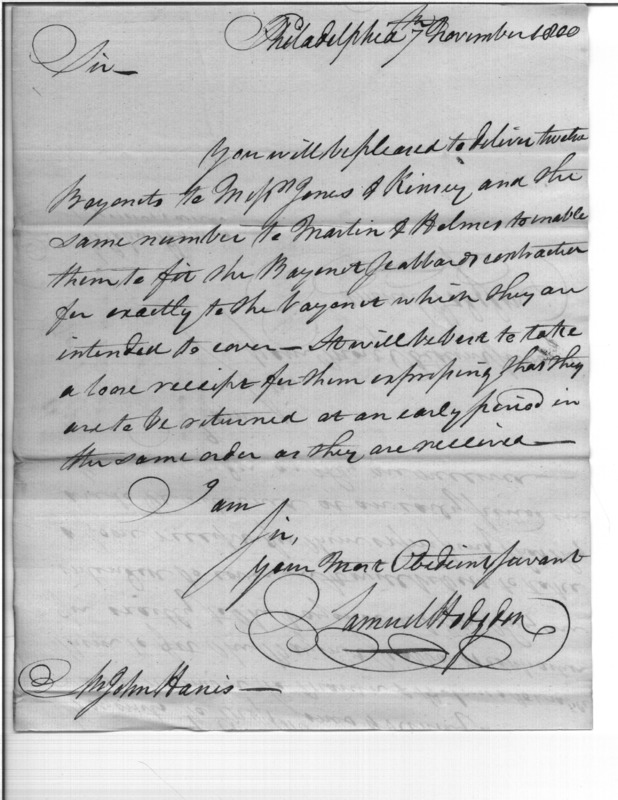 Philadelphia 7th November 1800
Sir —
You will be pleased to deliver twelve
Bayonets to Messrs Jones & Kinsey and the
same number to Martin & Helmes to enable
them to fit the Bayonet Scabbards contracted
for exactly to the bayonet which they are
intended to cover — It will be best to take
a loose receipt for them expressing that they
are to be returned at an early period in
the same order as they are received —
I am
Sir,
Your Most Obedient Servant
Samuel Hodgdon
Mr John Harris —